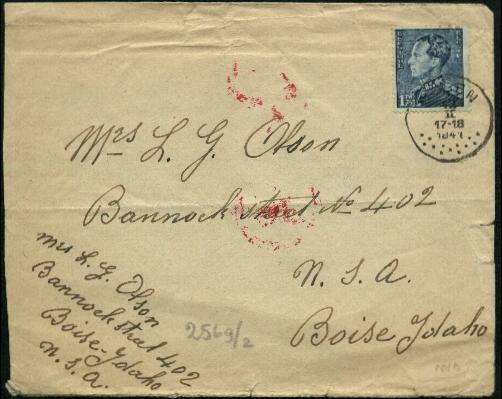 17-18
1941
Mrs L. G. Olson
Bannock straat No 402
N. S. A.
Boise Ydaho
Mrs L. G. Olson
Bannock street 402
Boise-Ydaho
N. S. A.
2569/2